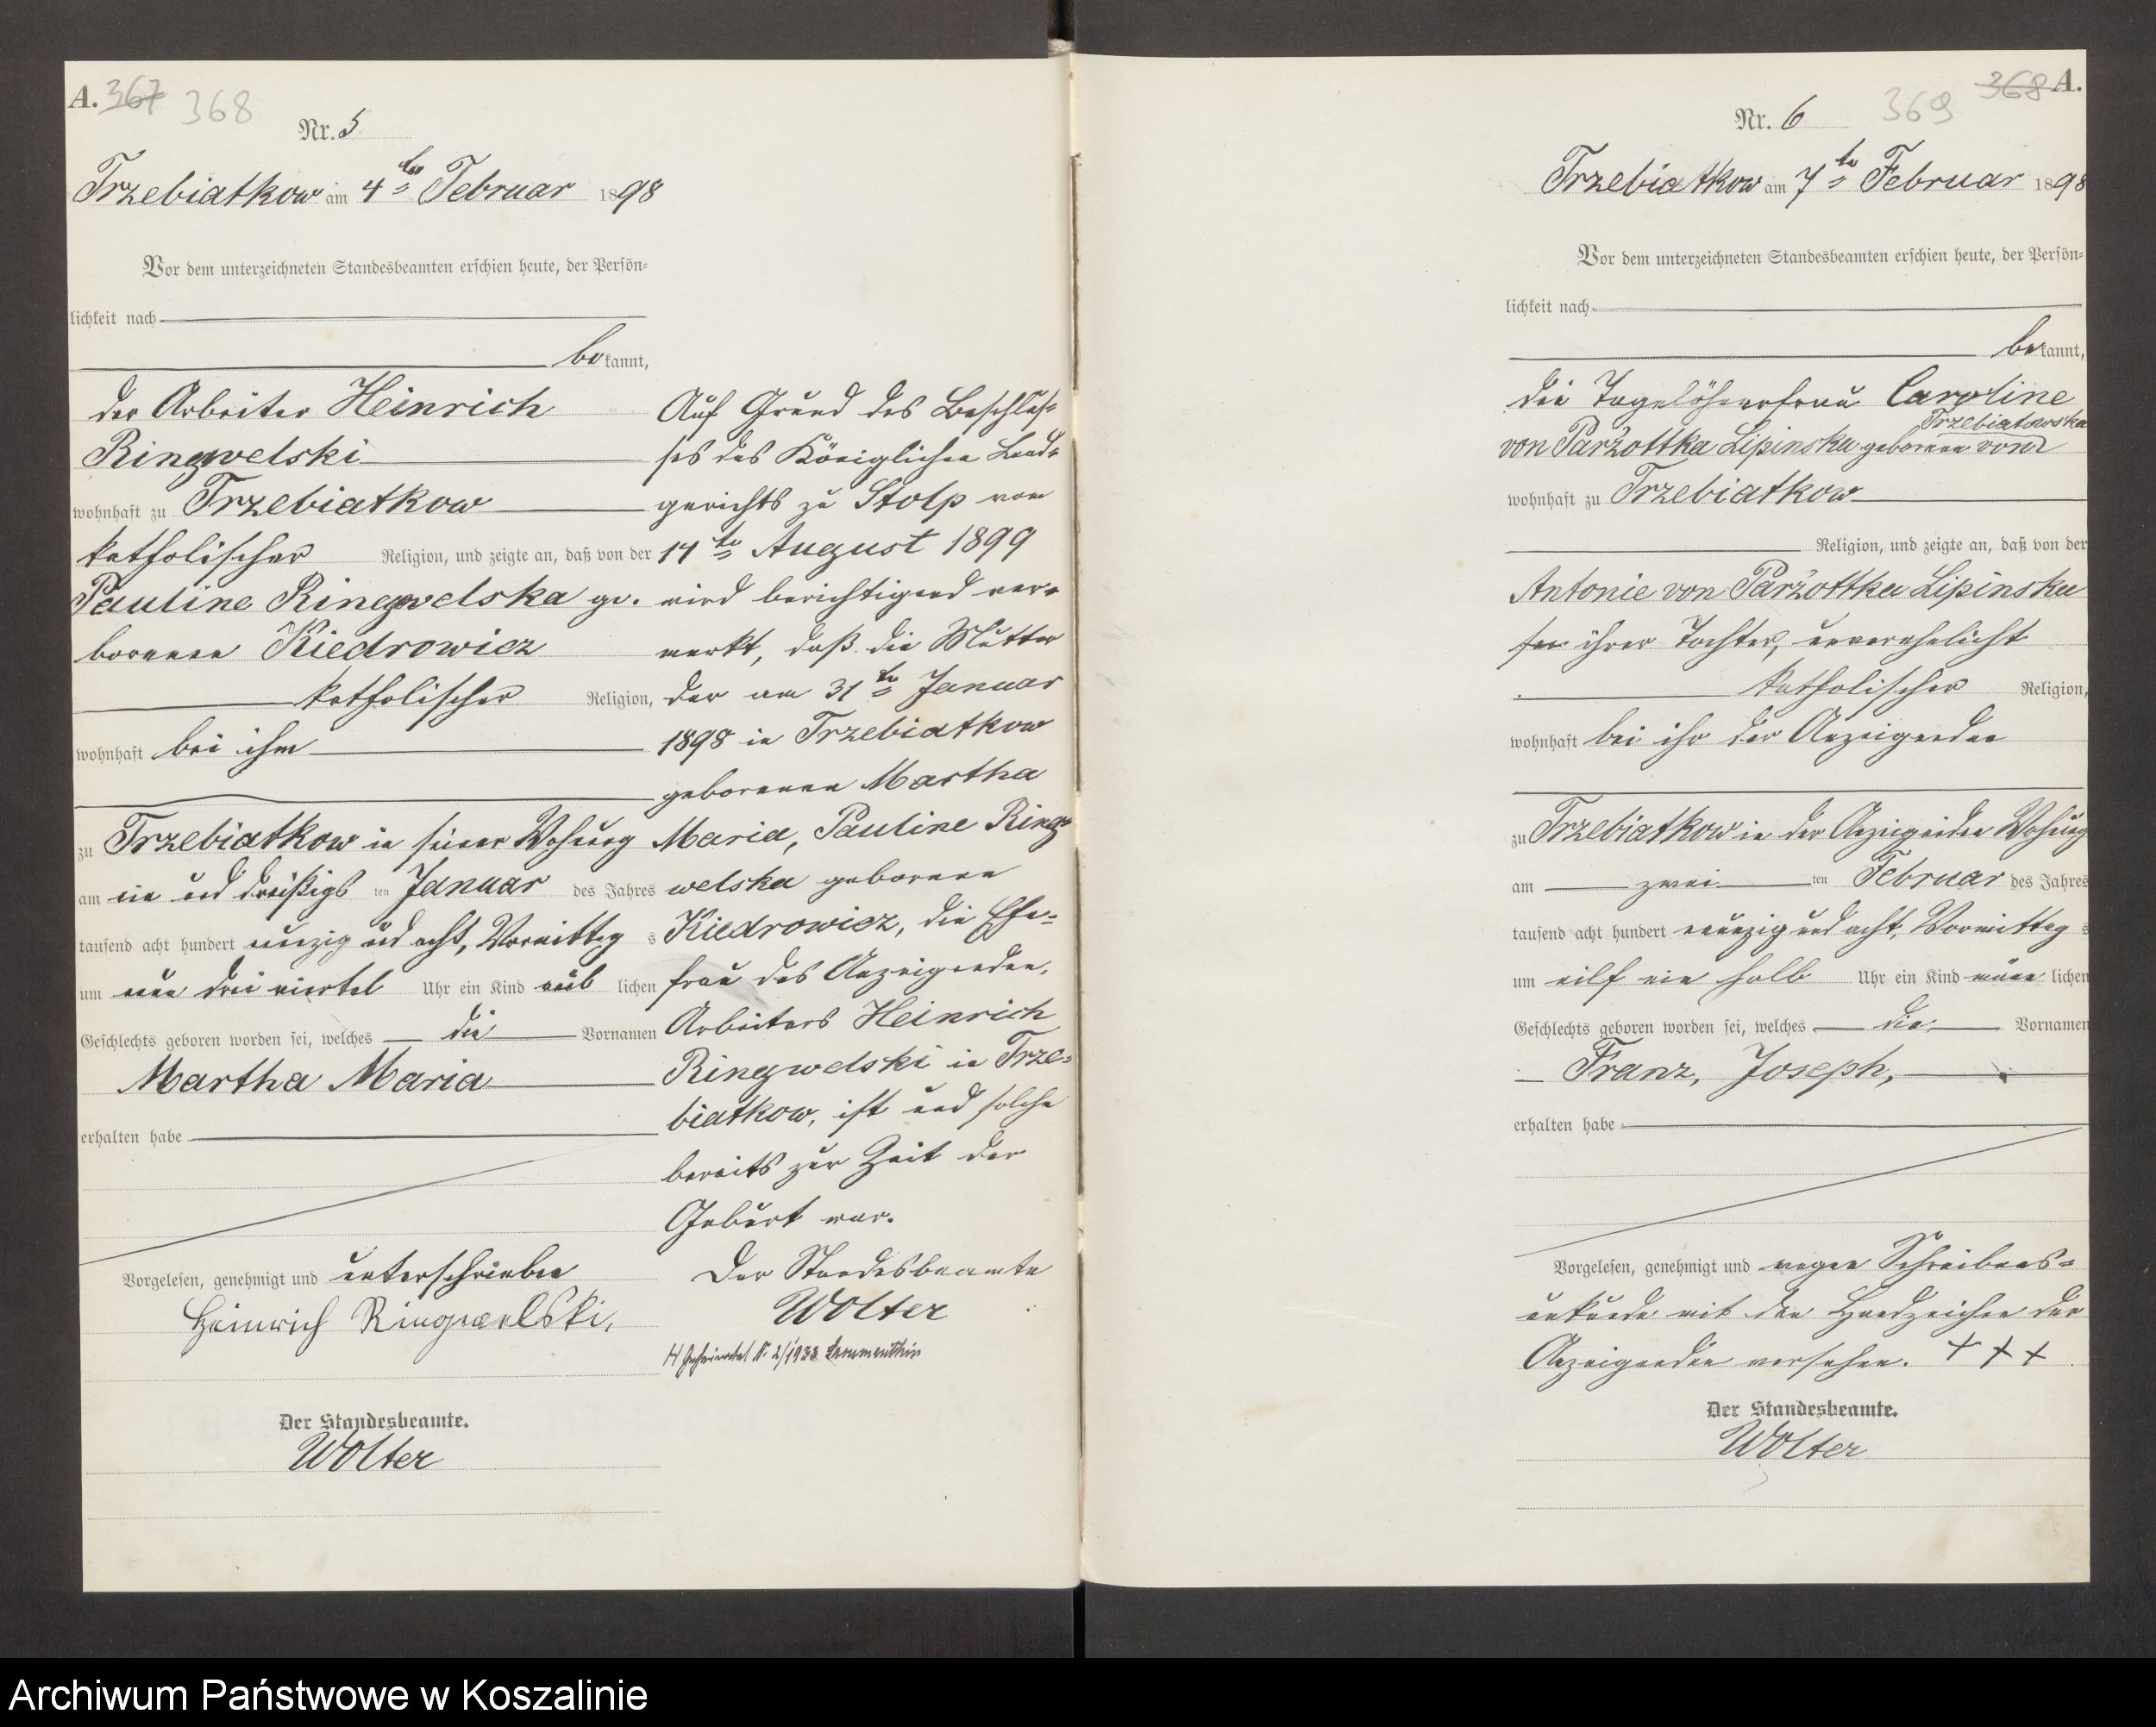 A. 367 368
Nr. 5
Trzebiatkow am 4ten Februar 1898
Vor dem unterzeichneten Standesbeamten erschien heute, der Persön-
lichkeit nach
bekannt,
der Arbeiter Heinrich
Ringwelski
wohnhaft zu Trzebiatkow
katholischer Religion, und zeigte an, daß von der
Pauline Ringwelska ge-
borenen Kiedrowicz
katholischer Religion,
wohnhaft bei ihm
zu Trzebiatkow in seiner Wohnung
am ein und dreißigs ten Januar des Jahres
tausend acht hundert neunzig und acht, Vormittag s
um neun drei viertel Uhr ein Kind weib lichen
Geschlechts geboren worden sei, welches die Vornamen
Martha Maria
erhalten habe
Vorgelesen, genehmigt und unterschrieben
Heinrich Ringwelski,
Der Standesbeamte.
Wolter
Auf Grund des Beschlus-
ses des Königlichen Land-
gerichts zu Stolp vom
14ten August 1899
wird berichtigend ver-
merkt, daß die Mutter
der am 31ten Januar
1898 in Trzebiatkow
geborenen Martha
Maria, Pauline Ring-
welska geborene
Kiedrowicz, die Ehe-
frau des Anzeigenden,
Arbeiters Heinrich
Ringwelski in Trze-
biatkow, ist und solche
bereits zur Zeit der
Geburt war.
Der Standesbeamte
Wolter
Geheiratet Nr. 2/1933
368 A.
369
Nr. 6
Trzebiatkow am 7ten Februar 1898
Vor dem unterzeichneten Standesbeamten erschien heute, der Persön-
lichkeit nach
bekannt,
die Tagelöhnerfrau Caroline
Trzebiatowska
von Parzottka Lipinska geborene von
wohnhaft zu Trzebiatkow
Religion, und zeigte an, daß von der
Antonie von Parzottka Lipinska
ihrer Tochter, unverehelicht
katholischer Religion,
wohnhaft bei ihr der Anzeigenden
zu Trzebiatkow in der Anzeigenden Wohnung
am zwei ten Februar des Jahres
tausend acht hundert neunzig und acht, Vormittag s
um eilf ein halb Uhr ein Kind männ lichen
Geschlechts geboren worden sei, welches die Vornamen
Franz, Joseph,
erhalten habe
Vorgelesen, genehmigt und wegen Schreibens-
unkunde mit den Handzeichen der
Anzeigenden versehen. + + +
Der Standesbeamte.
Wolter
Archiwum Państwowe w Koszalinie